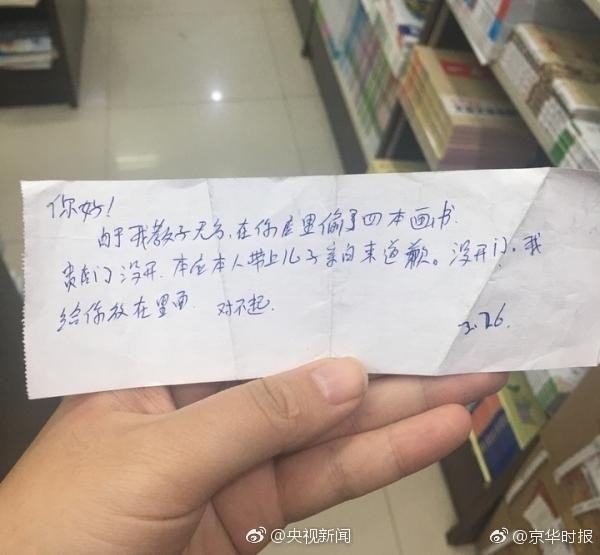 你好!
由于我教子无方,在你店里偷了四本画书.
贵店门没开.本应本人带上儿子亲自来道歉。没开门,我
给你放在里面. 对不起.
3.26.
@央视新闻
@京华时报